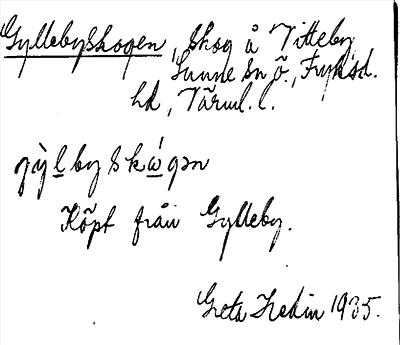 Gyllebyskogen, skog å Titteby,
Sunne sn Ö., Fryksd.
hd, Värml. l.
Köpt från Gylleby.
Greta Hedin 1935.